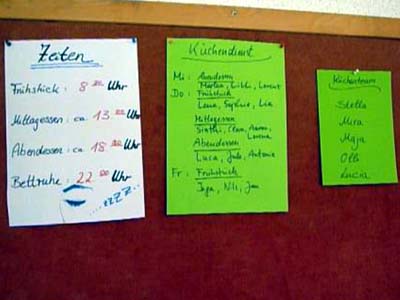 Zeiten
Frühstück: 8.00 Uhr
Mittagessen: ca. 13.00 Uhr
Abendessen: ca. 18.00 Uhr
Bettruhe: 22.00 Uhr
...zzZZ...
Küchendienst
Mi: Abendessen
Lorent
Do: Frühstück
Lena, Sophie, Lia
Mittagessen
Aaron,
Lorena
Abendessen
Luca, Jule, Antonia
Fr: Frühstück
Inga, Nils, Jan
Küchenteam
Stella
Mira
Maja
Olli
Lucia